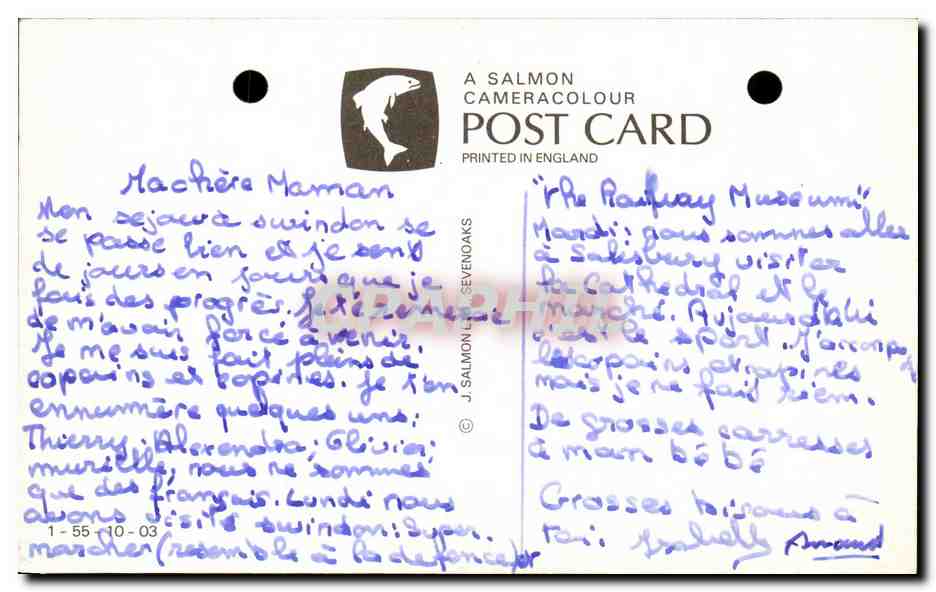 A SALMON
CAMERACOLOUR
POST CARD
PRINTED IN ENGLAND
© J. SALMON SEVENOAKS
Ma chère Maman
Mon sejour à swindon se
se passe bien et je sens
de jours en jours que je
fais des progrès. Je te remercie
de m'avoir forcé à venir.
Je me suis fait pleins de
copains et copines. Je t'en
ennumère quelques uns:
Thierry, Alexendra, Olivier,
murielle, nous ne sommes
que des français. Lundi nous
avons visité swindon: Super.
marcher (resemble à la defence) et
1-55-10-03
"The Railway Museum"
Mardi: nous sommes aller
à Salisbury visiter
la Cathedral et le
Marché. Aujourd'hui
le sport. J'accompa
les copains et copines
mais je ne fait rien.
De grosses carresses
à mon bébé
Grosses bisous à
toi. Isabelle